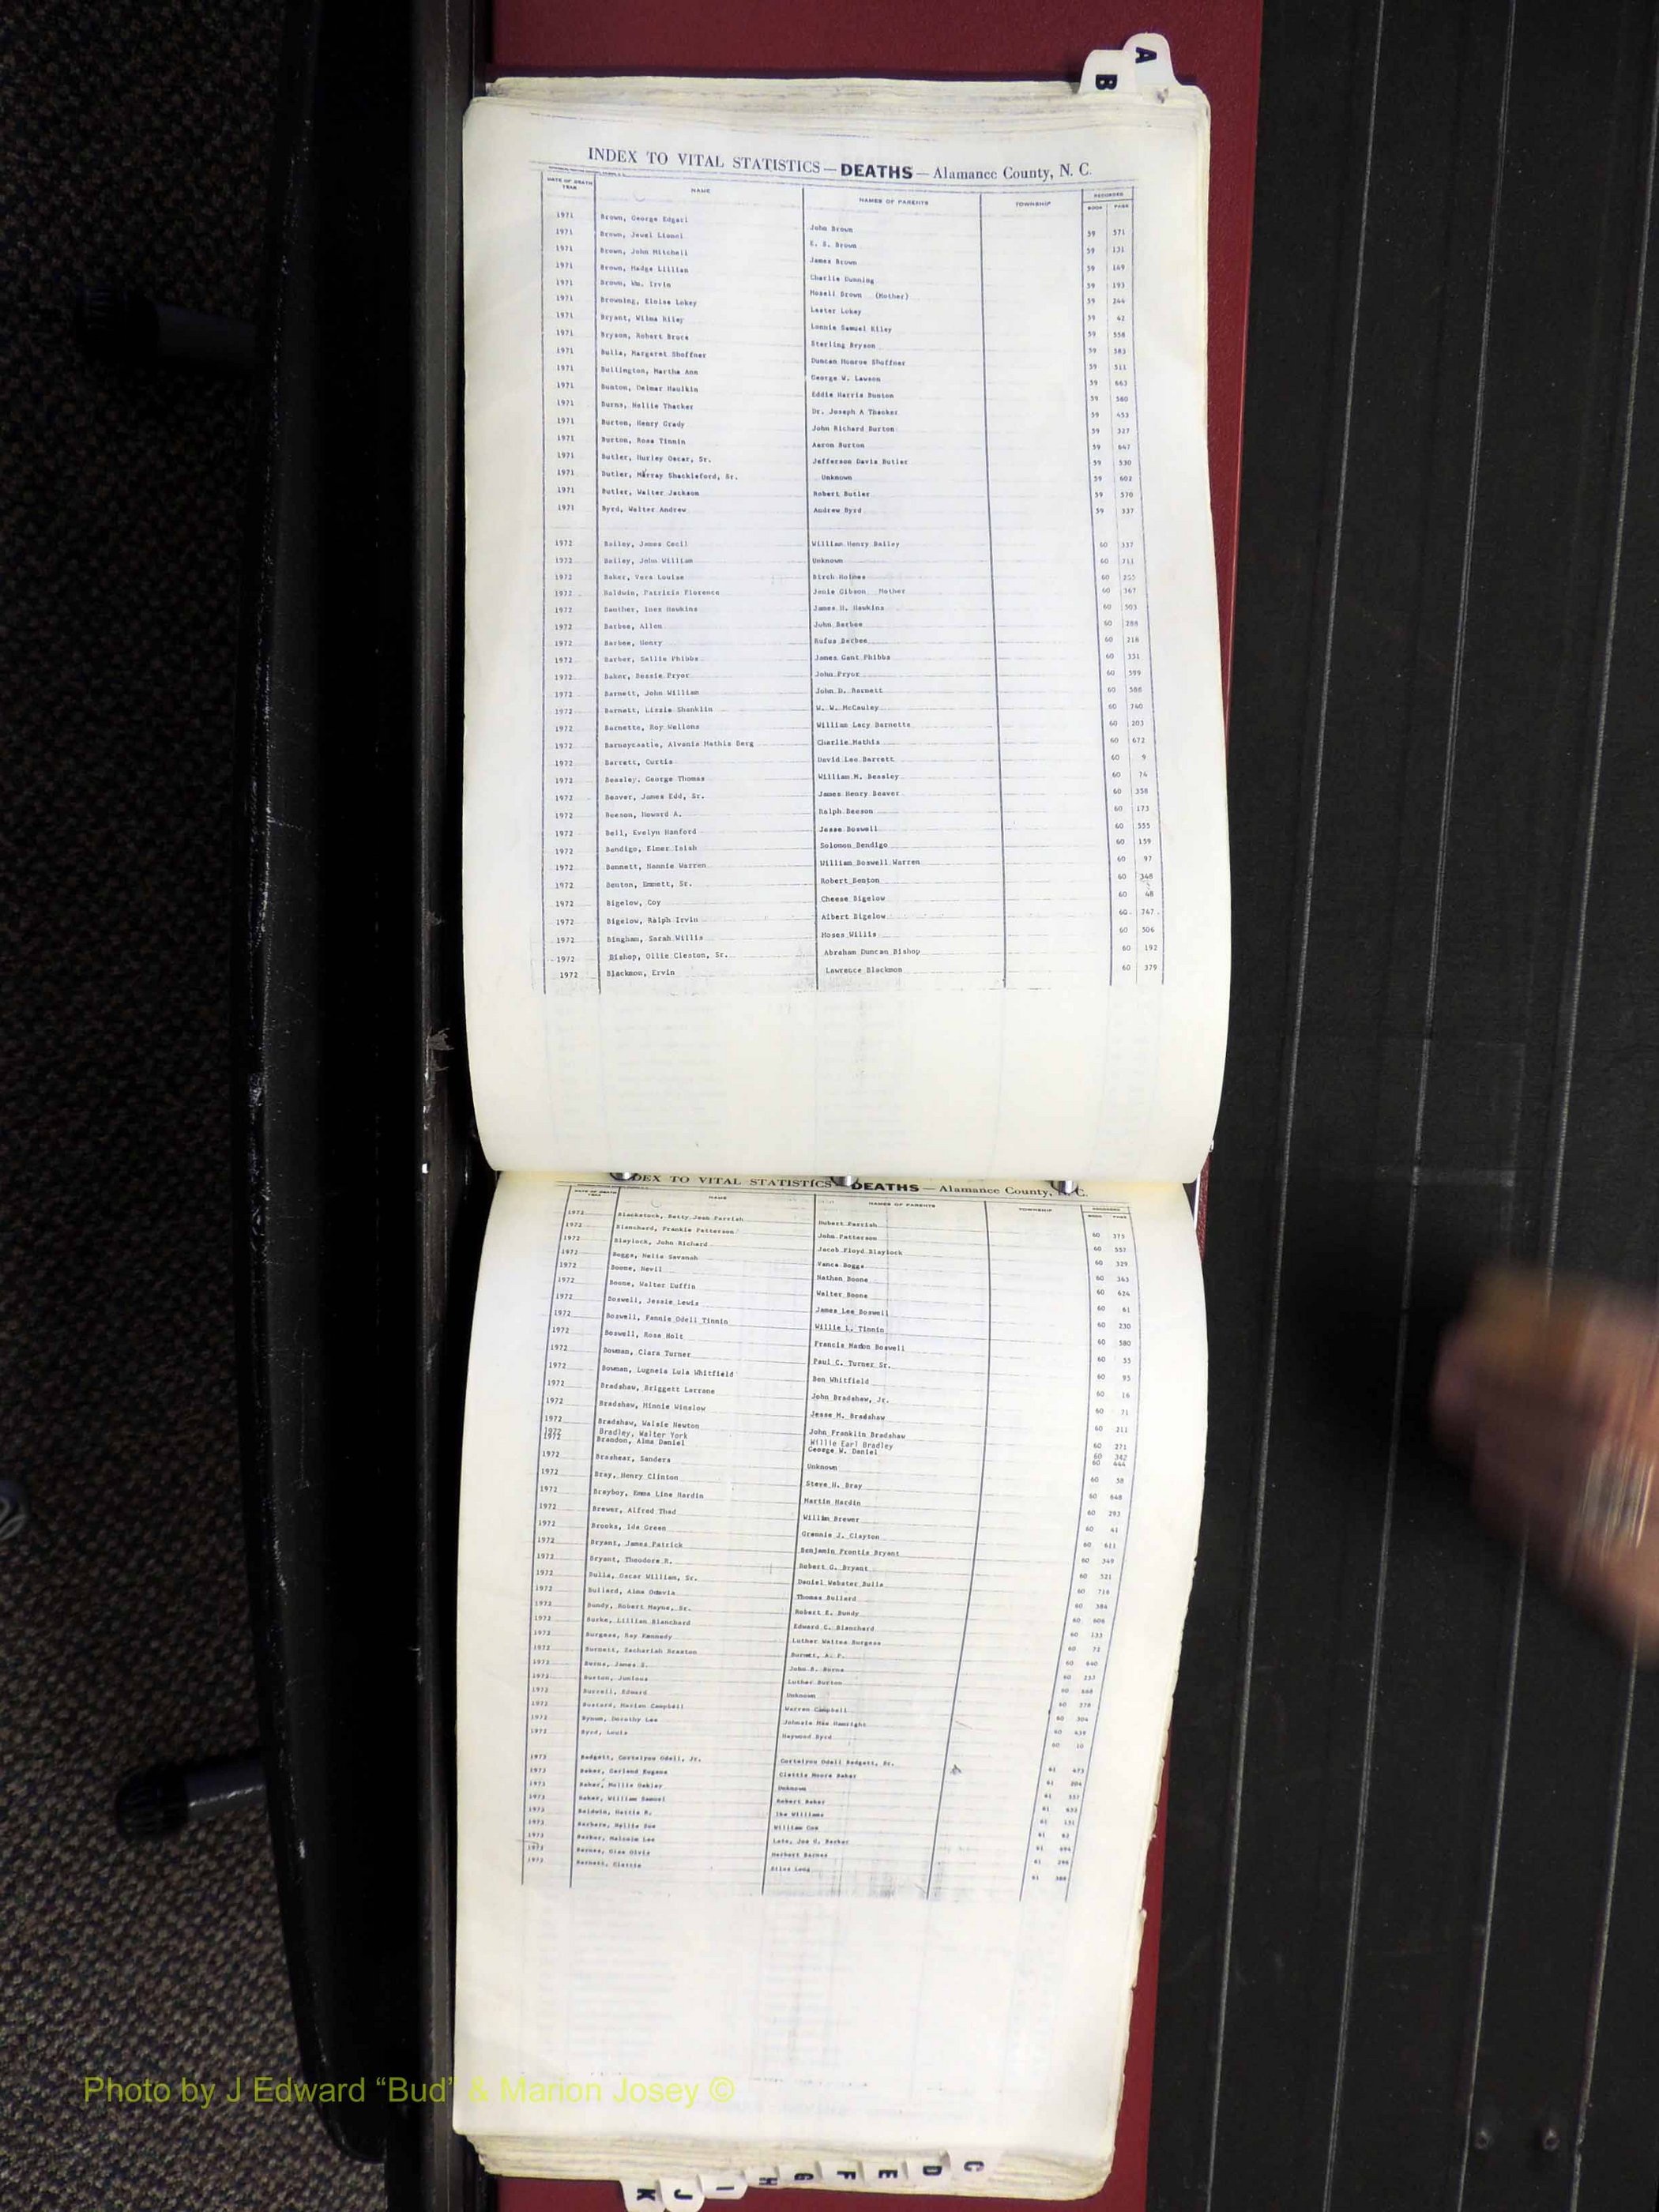 A
B
INDEX TO VITAL STATISTICS — DEATHS — Alamance County, N. C.
DATE OF DEATH YEAR NAME NAMES OF PARENTS TOWNSHIP RECORDED BOOK PAGE
1971 Brown, George Edgar John Brown 59 571
1971 Brown, Jewel Lionel E. S. Brown 59 131
1971 Brown, John Mitchell James Brown 59 169
1971 Brown, Madge Lillian Charlie Dunning 59 193
1971 Brown, Wm. Irvin Mozell Brown (Mother) 59 244
1971 Browning, Eloise Lokey Lester Lokey 59 62
1971 Bryant, Wilma Riley Lonnie Samuel Riley 59 558
1971 Bryson, Robert Bruce Sterling Bryson 59 383
1971 Bulla, Margaret Shoffner Duncan Monroe Shoffner 59 511
1971 Bullington, Martha Ann George W. Lawson 59 663
1971 Bunton, Delmar Haulkin Eddie Harris Bunton 59 580
1971 Burns, Nellie Thacker Dr. Joseph A Thacker 59 453
1971 Burton, Henry Grady John Richard Burton 59 327
1971 Burton, Rosa Tinnin Aaron Burton 59 647
1971 Butler, Hurley Oscar, Sr. Jefferson Davis Butler 59 530
1971 Butler, Murray Shackleford, Sr. Unknown 59 602
1971 Butler, Walter Jackson Robert Butler 59 570
1971 Byrd, Walter Andrew Andrew Byrd 59 337
1972 Bailey, James Cecil William Henry Bailey 60 337
1972 Bailey, John William Unknown 60 711
1972 Baker, Vera Louise Birch Holmes 60 255
1972 Baldwin, Patricia Florence Josie Gibson Mother 60 367
1972 Banther, Inez Hawkins James H. Hawkins 60 503
1972 Barbee, Allen John Barbee 60 288
1972 Barbee, Henry Rufus Barbee 60 218
1972 Barber, Sallie Phibbs James Gant Phibbs 60 331
1972 Baker, Bessie Pryor John Pryor 60 599
1972 Barnett, John William John D. Barnett 60 588
1972 Barnett, Lizzie Shanklin W. W. McCauley 60 740
1972 Barnette, Roy Wellons William Lacy Barnette 60 203
1972 Barneycastle, Alvania Mathis Berg Charlie Mathis 60 672
1972 Barrett, Curtis David Lee Barrett 60 9
1972 Beasley, George Thomas William M. Beasley 60 74
1972 Beaver, James Edd, Sr. James Henry Beaver 60 358
1972 Beeson, Howard A. Ralph Beeson 60 173
1972 Bell, Evelyn Hanford Jesse Boswell 60 555
1972 Bendigo, Elmer Isiah Solomon Bendigo 60 159
1972 Bennett, Nannie Warren William Boswell Warren 60 97
1972 Benton, Emmett, Sr. Robert Benton 60 348
1972 Bigelow, Coy Cheese Bigelow 60 48
1972 Bigelow, Ralph Irvin Albert Bigelow 60 747
1972 Bingham, Sarah Willis Moses Willis 60 506
1972 Bishop, Ollie Cleston, Sr. Abraham Duncan Bishop 60 192
1972 Blackmon, Ervin Lawrence Blackmon 60 379
INDEX TO VITAL STATISTICS DEATHS — Alamance County, N. C.
DATE OF DEATH YEAR NAME NAMES OF PARENTS TOWNSHIP RECORDED BOOK PAGE
1972 Blackstock, Betty Jean Parrish Hubert Parrish 60 375
1972 Blanchard, Frankie Patterson John Patterson 60 553
1972 Blaylock, John Richard Jacob Floyd Blaylock 60 329
1972 Boggs, Halie Savanah Vance Boggs 60 343
1972 Boone, Nevil Nathan Boone 60 624
1972 Boone, Walter Ruffin Walter Boone 60 61
1972 Boswell, Jessie Lewis James Lee Boswell 60 230
1972 Boswell, Fannie Odell Tinnin Willie L. Tinnin 60 580
1972 Boswell, Rosa Holt Francis Marion Boswell 60 55
1972 Bowman, Clara Turner Paul C. Turner Sr. 60 95
1972 Bowman, Lugneia Lula Whitfield Ben Whitfield 60 16
1972 Bradshaw, Briggett Larrone John Bradshaw, Jr. 60 71
1972 Bradshaw, Minnie Winslow Jesse M. Bradshaw 60 211
1972 Bradshaw, Walsie Newton John Franklin Bradshaw 60 271
1972 Bradley, Walter York Willie Earl Bradley 60 342
1972 Brandon, Alma Daniel George W. Daniel 60 444
1972 Brashear, Sandera Unknown 60 58
1972 Bray, Henry Clinton Steve H. Bray 60 648
1972 Brayboy, Emma Line Hardin Martin Hardin 60 293
1972 Brewer, Alfred Thad William Brewer 60 41
1972 Brooks, Ida Green Grennie J. Clayton 60 611
1972 Bryant, James Patrick Benjamin Frontis Bryant 60 349
1972 Bryant, Theodore R. Robert G. Bryant 60 521
1972 Bulla, Oscar William, Sr. Daniel Webster Bulla 60 718
1972 Bullard, Alma Octavia Thomas Bullard 60 384
1972 Bundy, Robert Mayne, Sr. Robert E. Bundy 60 606
1972 Burke, Lillian Blanchard Edward C. Blanchard 60 133
1972 Burgess, Ray Kennedy Luther Walter Burgess 60 72
1972 Burnett, Zachariah Braxton Burnett, A. P. 60 640
1972 Burns, James S. John R. Burns 60 257
1972 Burton, Junious Luther Burton 60 668
1972 Burrell, Edward Unknown 60 278
1972 Bustard, Marian Campbell Warren Campbell 60 304
1972 Bynum, Dorothy Lee Johnsie Mae 60
1972 Byrd, Louis Haywood Byrd 60 10
1973 Badgett, Cortelyou Odell, Jr. Cortelyou Odell Badgett, Sr. 61 473
1973 Baker, Garland Eugene Clattis Moore Baker 61 204
1973 Baker, Mollie Oakley Unknown 61 557
1973 Baker, William Samuel Robert Baker 61
1973 Baldwin, Hattie R. Ike Williams 61 151
1973 Barbara, Nellie Sue William Cox 61 62
1973 Barber, Malcolm Lee Late, Joe U. Barber 61
1973 Barnes, Olvis Herbert Barnes 61 298
1973 Barnett, Clattie Long 61 388
C
D
E
F
G
H
I
J
K
Photo by J Edward “Bud” & Marion Josey ©